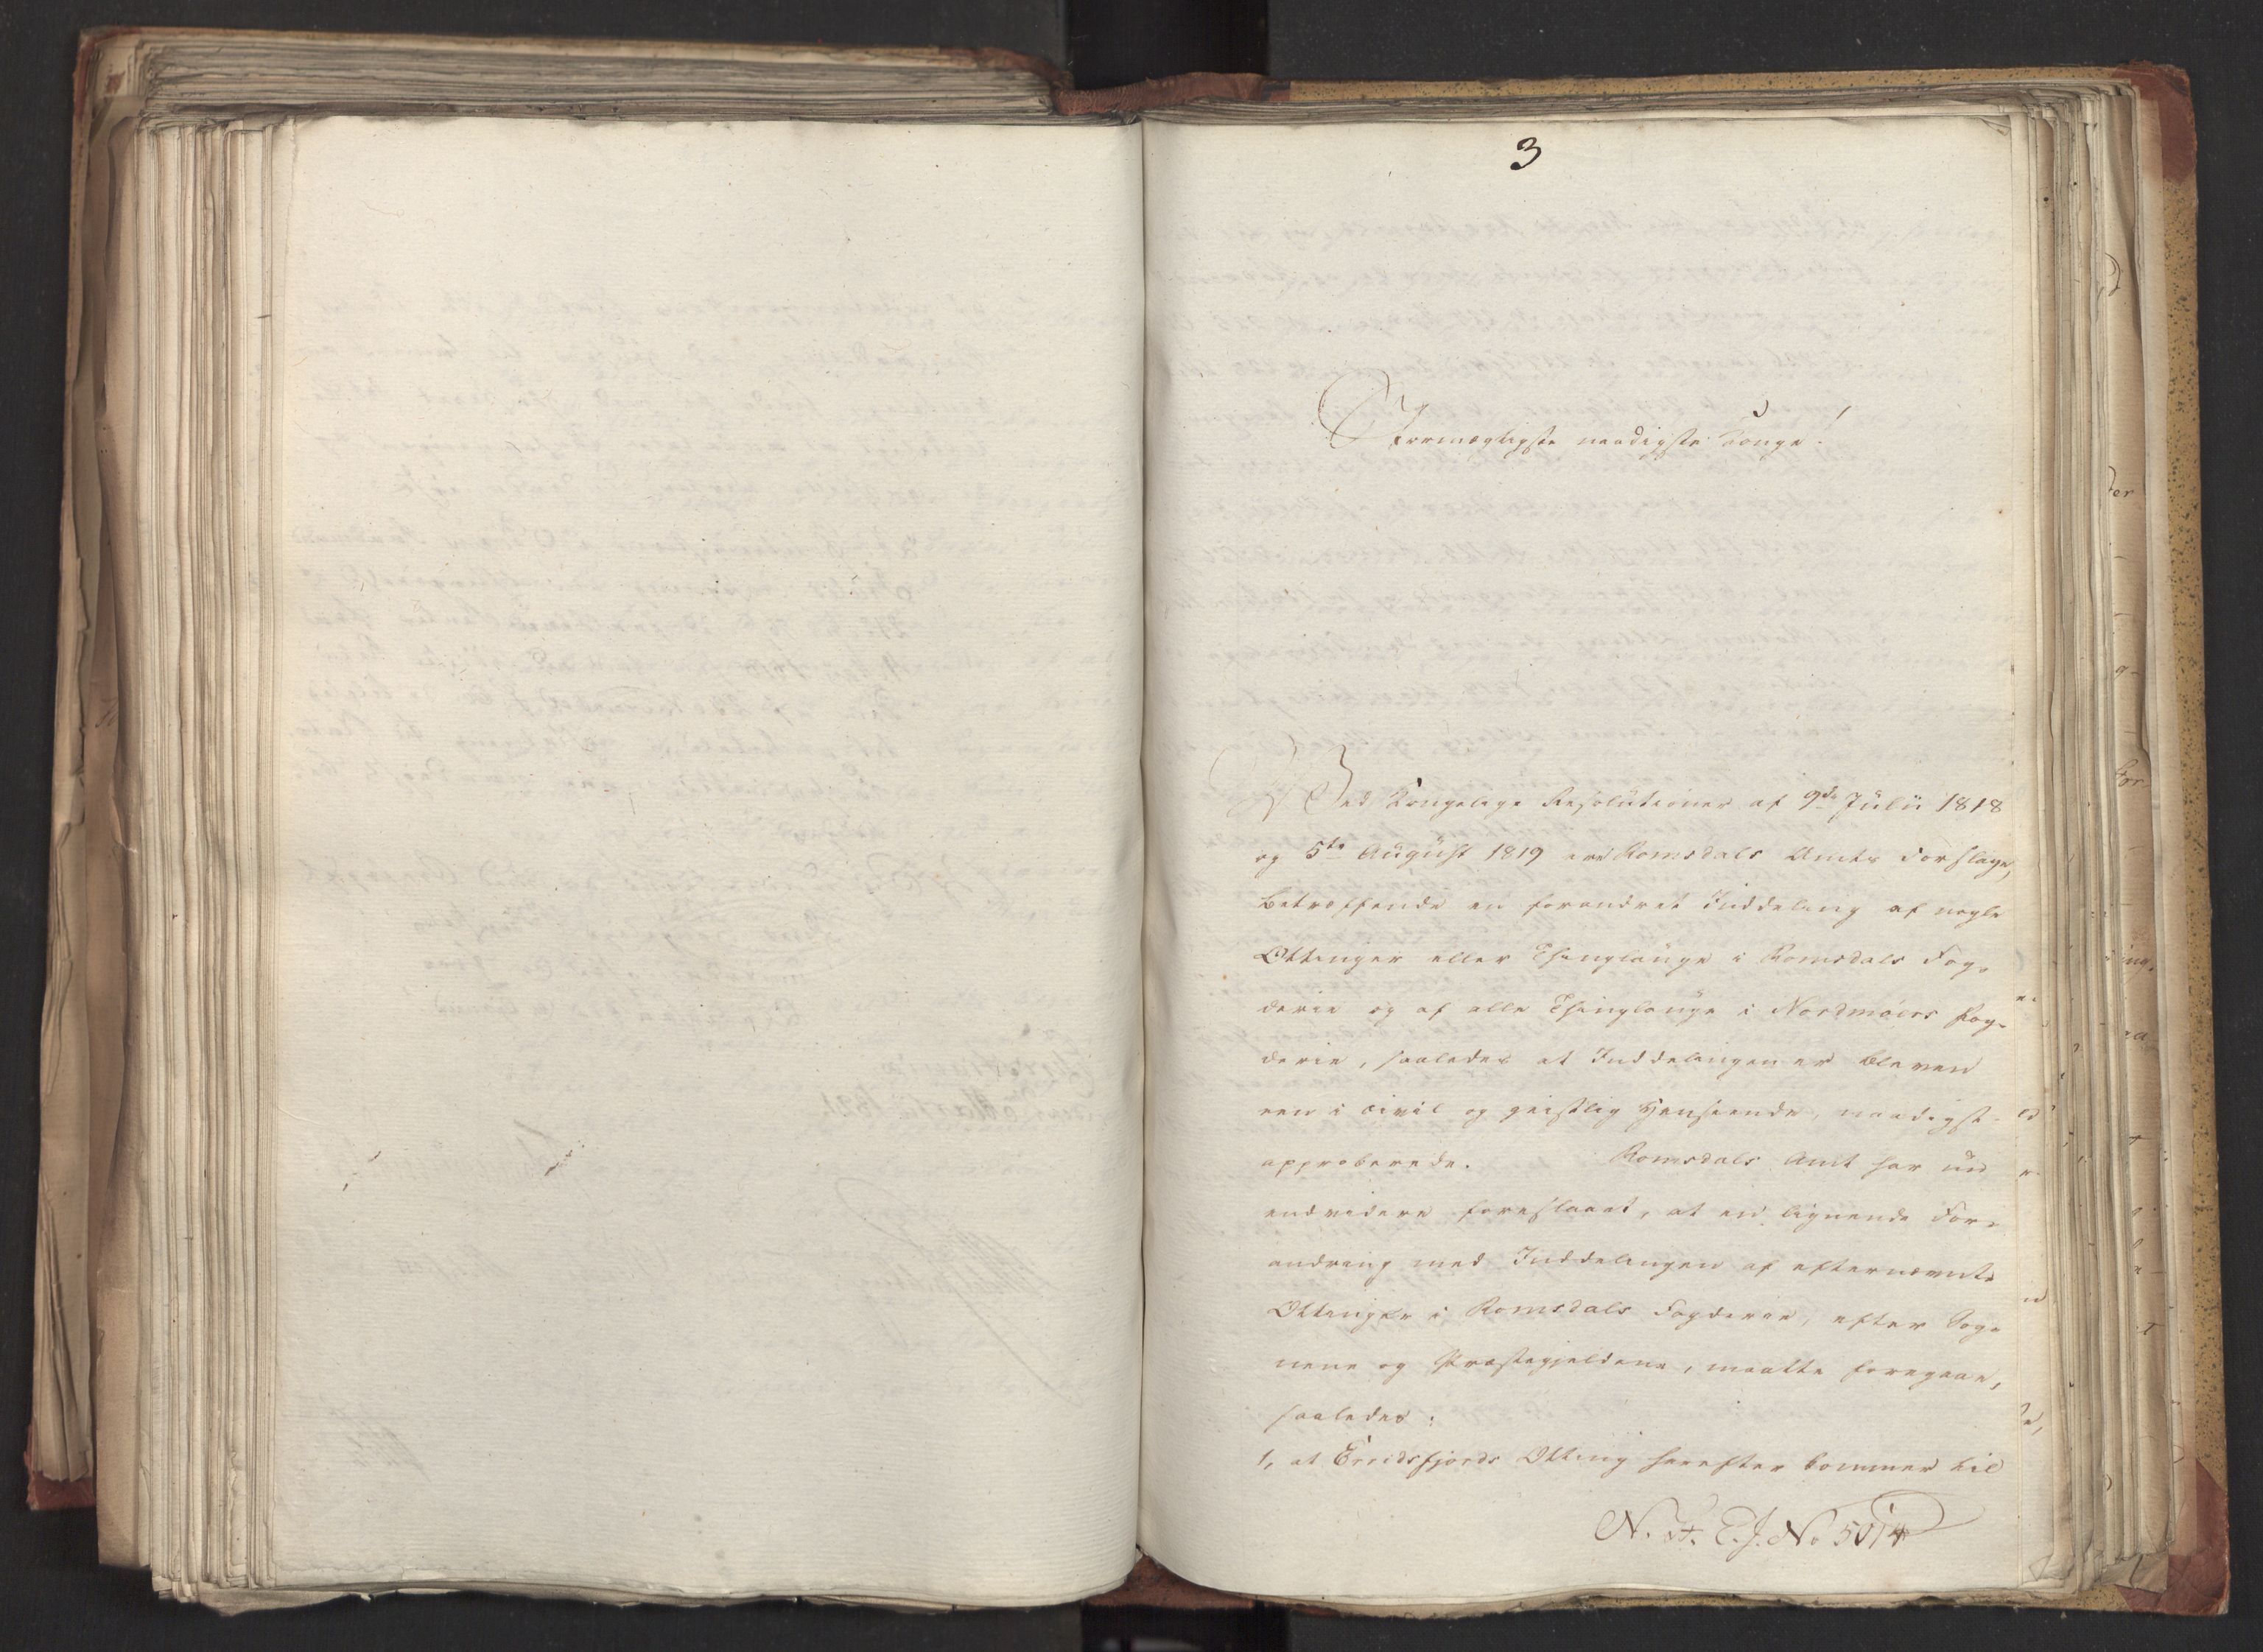 3
Stormægtigste naadigste Konge!
Ved Kongelige Resolutioner af 9de Julii 1818
og 5te August 1819 ere Romsdals Amts Forslage,
betræffende en forandret Inddeling af nogle
Ottinger eller Thinglauge i Romsdals Fog-
derie og af alle Thinglauge i Nordmøers Fog-
derie, saaledes at Inddelingen er bleven
een i civil og geistlig Henseende, naadigst
approberede. Romsdals Amt har nu
endvidere foreslaaet, at en lignende For-
andring med Inddelingen af efternævnte
Ottinger i Romsdals Fogderie, efter Sog-
nene og Præstegjeldene, maatte foregaae,
saaledes:
1, at Eridsfjords Otting herefter kommer til
N. St. E. J. No 5014